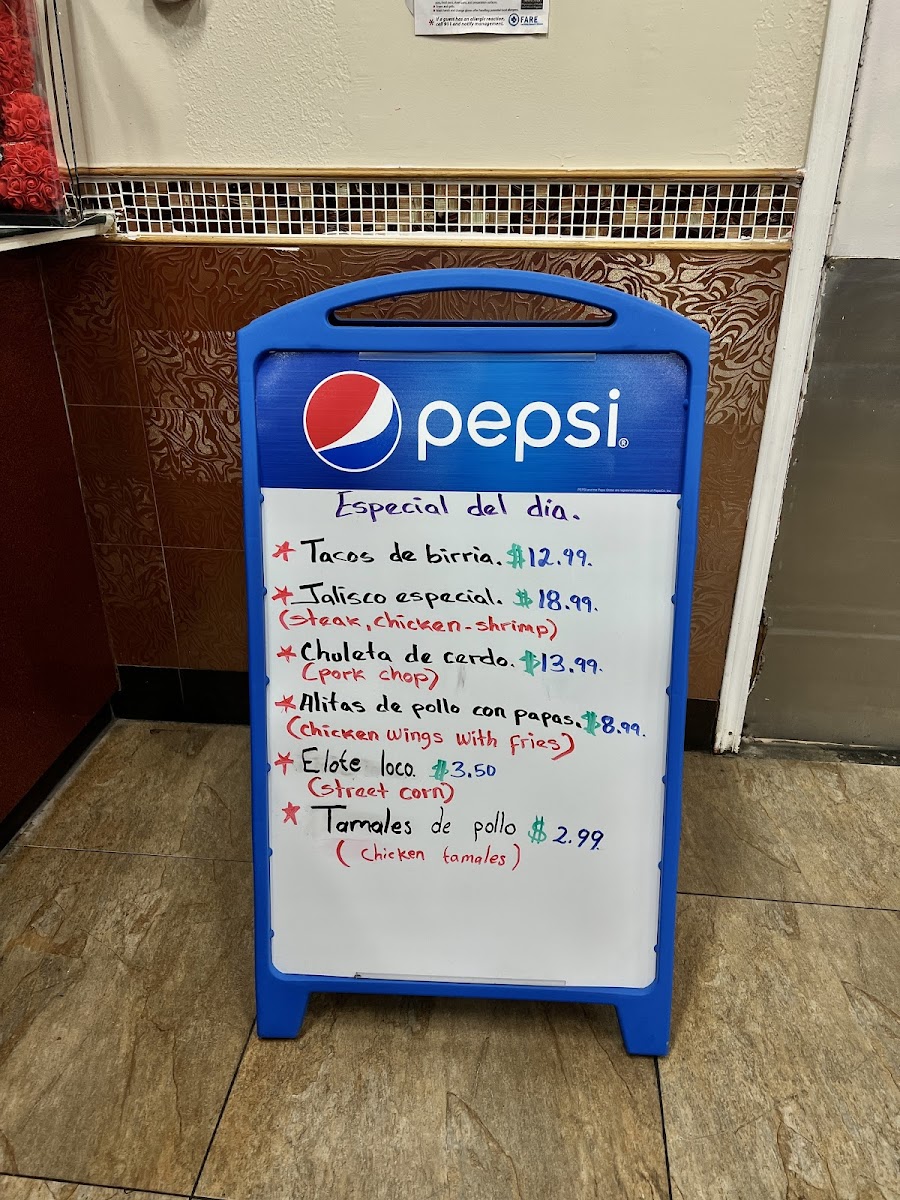 * If a guest has an allergic reaction,
call 911 and notify management.
FARE
pepsi®
Especial del dia.
* Tacos de birria. $12.99.
* Jalisco especial. $18.99.
(steak, chicken-shrimp)
* Chuleta de cerdo. $13.99.
(pork chop)
* Alitas de pollo con papas. $8.99.
(chicken wings with fries)
* Elote loco. $3.50
(street corn)
* Tamales de pollo $2.99
(chicken tamales)